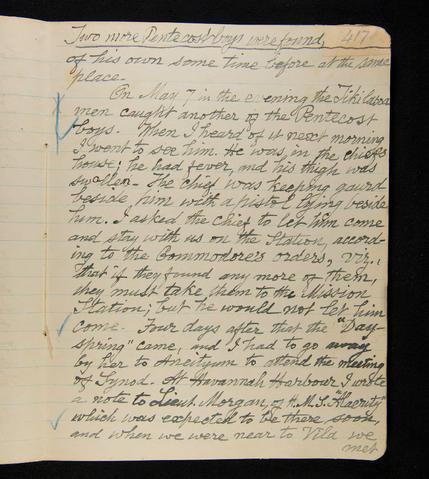 Two more Pentecost boys were found, 417
of his own some time before at the same
place.
On May 7 in the evening the Tikilasoa
men caught another of the Pentecost
boys. When I heard of it next morning
I went to see him. He was in the chief's
house; he had fever, and his thigh was
swollen. The chief was keeping gaurd
beside him with a pistol lying beside
him. I asked the chief to let him come
and stay with us on the Station, accord-
ing to the Commodore's orders, viz.,
that if they found any more of them,
they must take them to the Mission
Station; but he would not let him
come. Four days after that the "Day-
spring" came, and I had to go away
by her to Aneityum to attend the meeting
of Synod. At Havannah Harbour I wrote
a note to Lieut. Morgan of H.M.S. "Alacrity"
which was expected to be there soon,
and when we were near to Vila we
met